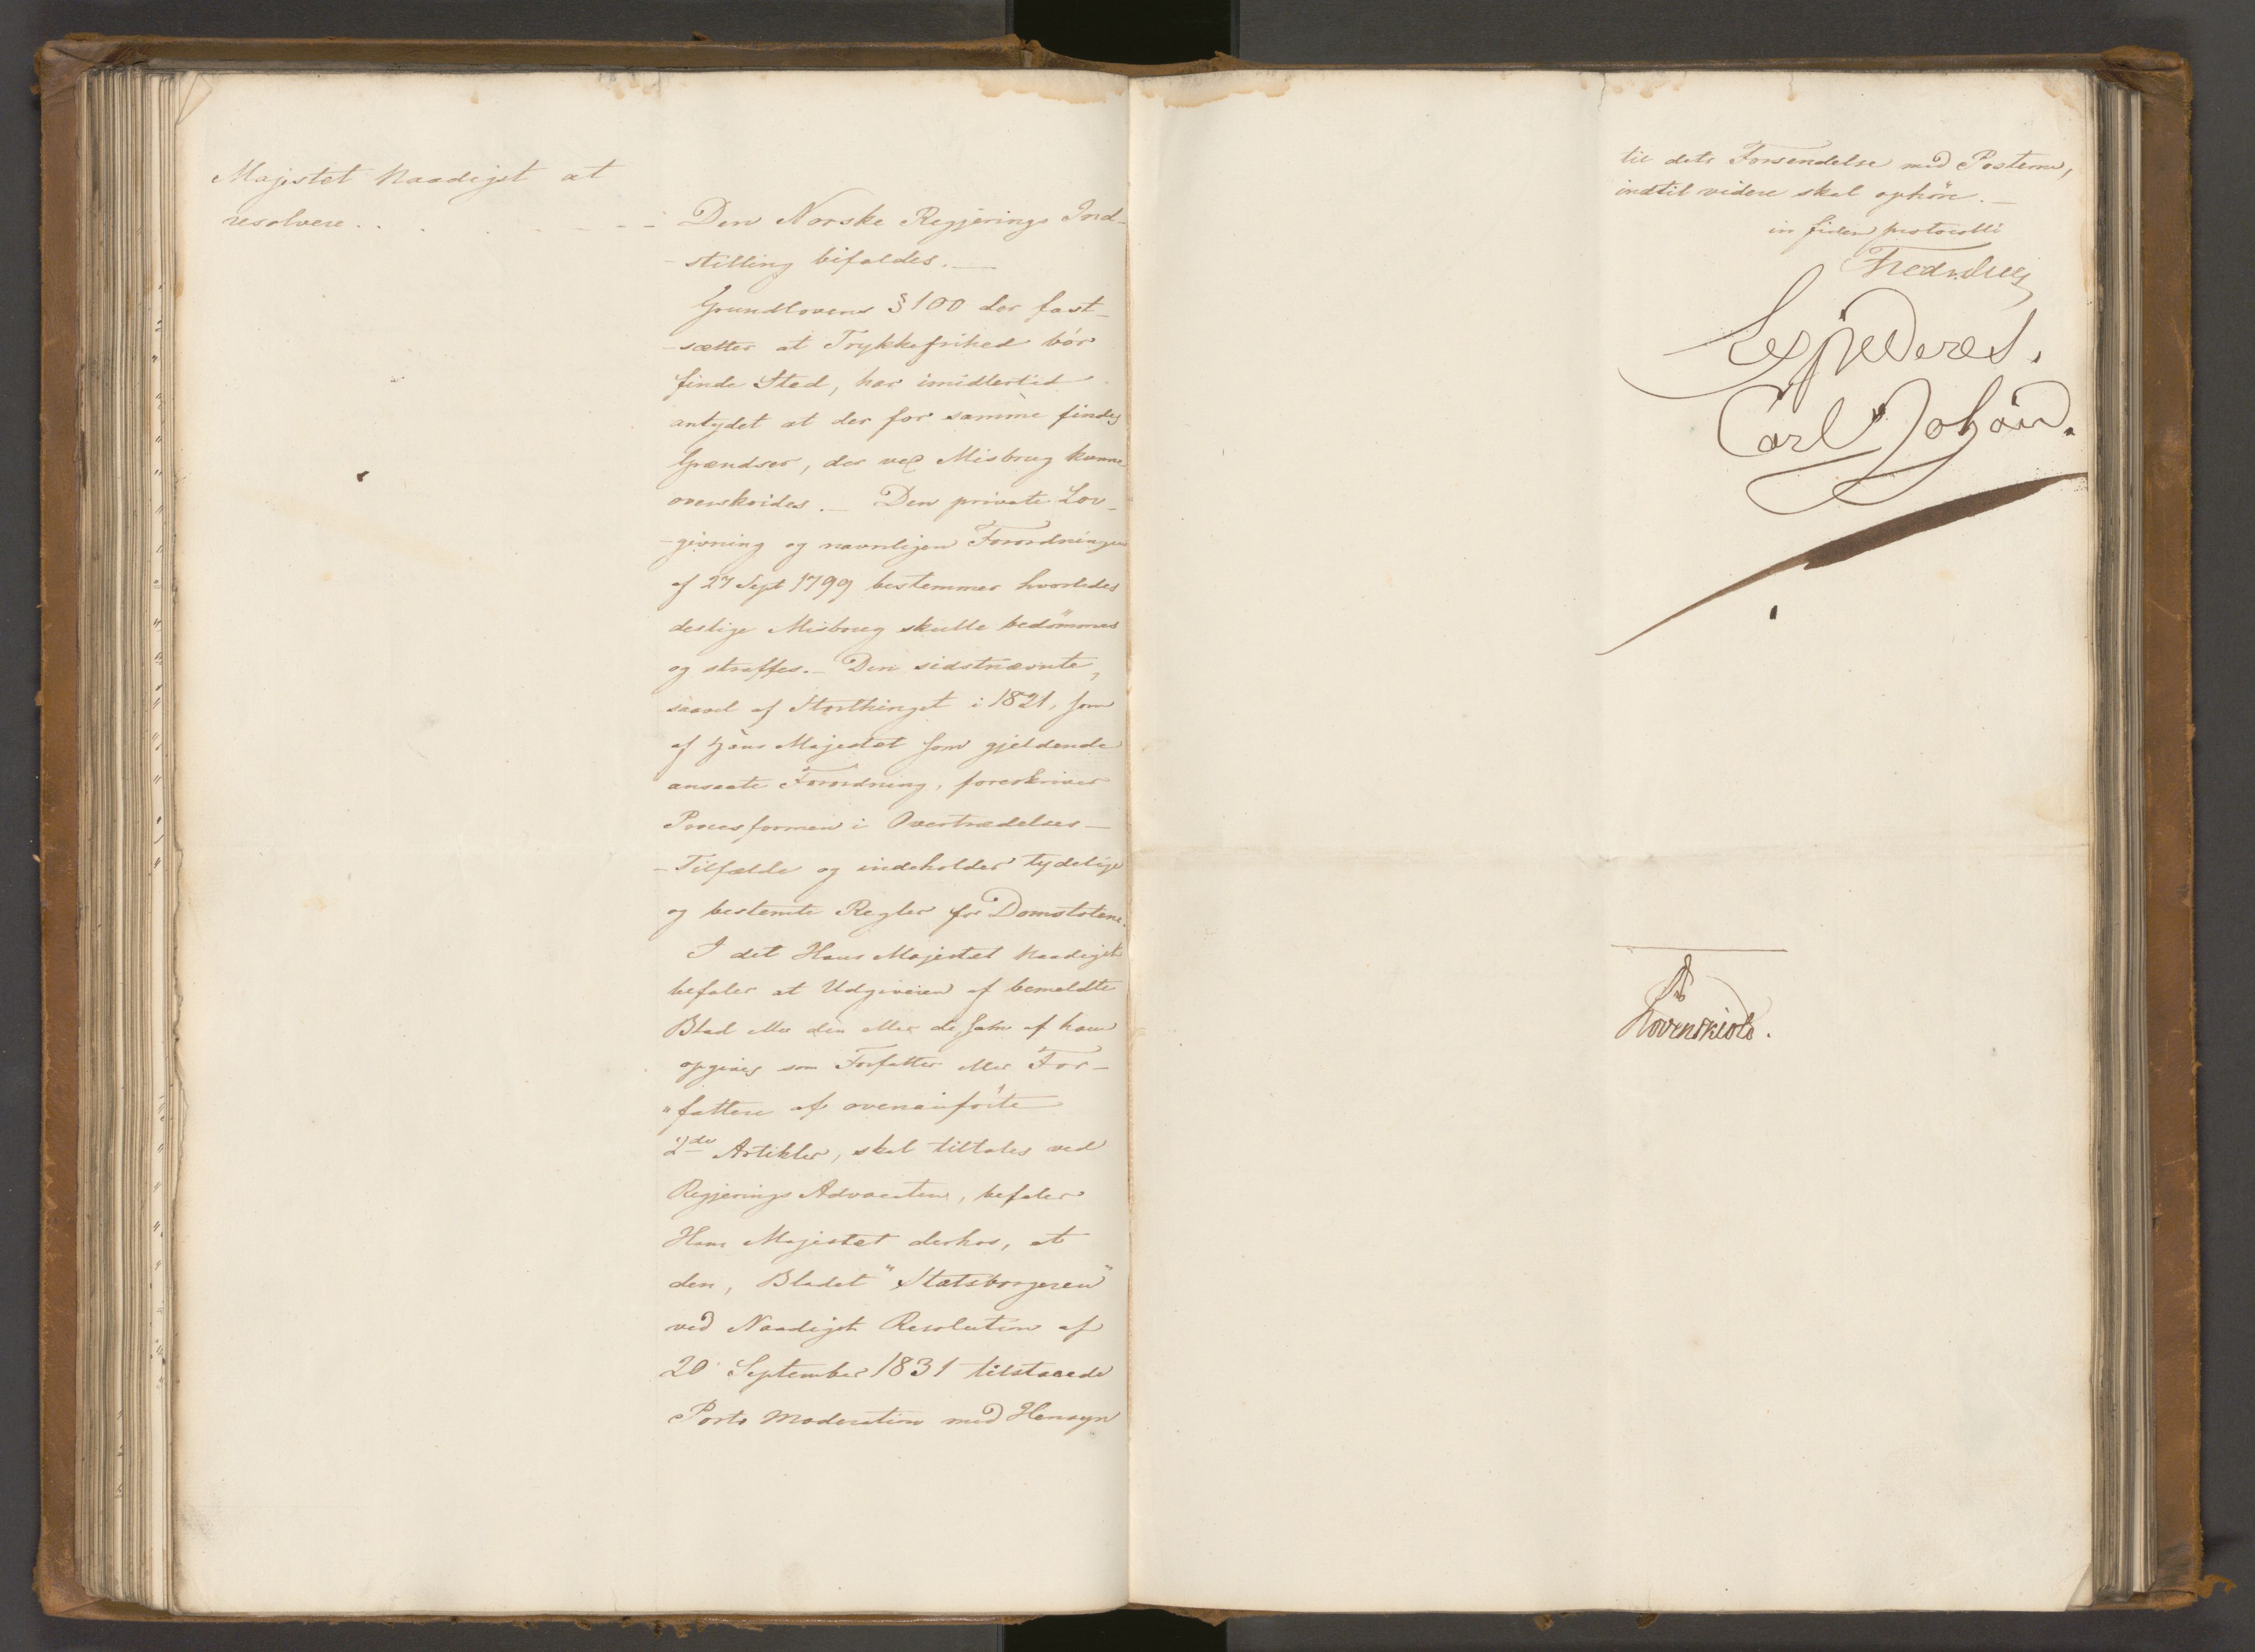 Majestet Naadigst at
resolvere . . . . . . .
Den Norske Regjerings Ind-
-stilling bifaldes.—
Grundlovens § 100 der fast-
-sætter at Trykkefrihed bör
finde Sted, har imidlertid
antydet at der for samme findes
Grændser, der ved Misbrug kunne
overskrides.— Den private Lov-
-givning og navnligen Forordningen
af 27 Sept 1799 bestemmer hvorledes
deslige Misbrug skulle bedömmes
og straffes.— Den sidstnævnte,
saavel af Storthinget i 1821, som
af Hans Majestæt som gjeldende
ansaate Forordning, foreskriver
Procesformen i Overtrædelses-
-Tilfælde og indeholder tydelige
og bestemte Regler for Domstolene.
I det Hans Majestæt Naadigst
befaler at Udgiveren af bemeldte
Blad eller den eller de som af ham
opgives som Forfatter eller For-
"fattere af ovenanförte
2de Artikler, skal tiltales ved
Regjerings Advocaten, befaler
Hans Majestæt derhos, at
den, Bladet "Statsborgeren"
ved Naadigst Resolution af
20 September 1831 tilstaaede
Porto Moderation med Hensyn
til dets Forsendelse med Posterne,
indtil videre skal ophöre.—
in fidem protocolli
Expederes.
Carl Johan.
Løvenskiold.